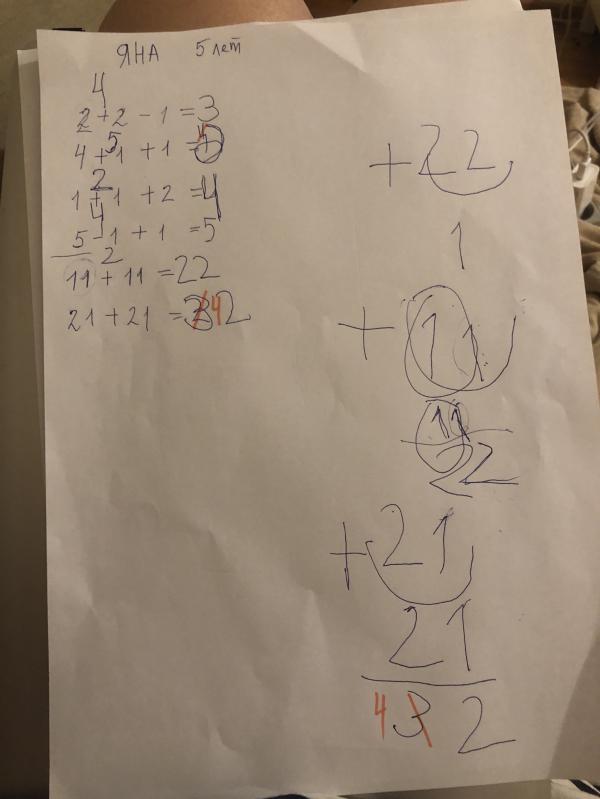 ЯНА 5 лет
4
2+2-1=3
5
4+1+1=
2
1+1+2=4
4
5-1+1=5
2
11+11=22
21+21=3 4 2
+22
1
+11
11
22
+21
21
4 3 2